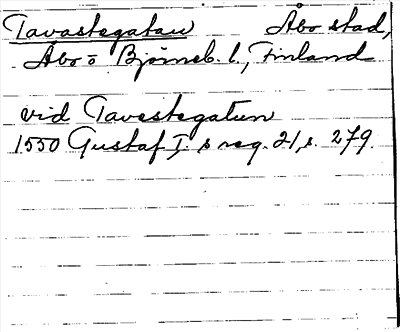 Tavastegatan Åbo stad,
Åbo o Björneb. l., Finland
vid Tavestegatun
1550 Gustaf I:s reg. 21, s. 279.